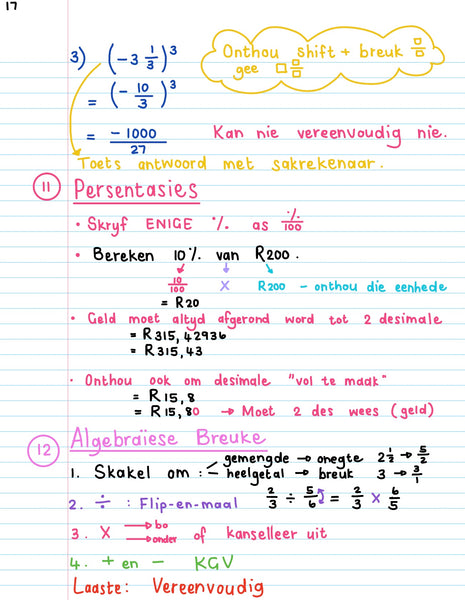 17
3) (-3 1/3)³
Onthou shift + breuk □/□
gee □ □/□
= (- 10/3)³
= -1000/27 Kan nie vereenvoudig nie.
Toets antwoord met sakrekenaar.
11 Persentasies
• Skryf ENIGE % as %/100
• Bereken 10% van R200.
10/100 X R200 - onthou die eenhede
= R20
• Geld moet altyd afgerond word tot 2 desimale
= R315,42936
= R315,43
• Onthou ook om desimale "vol te maak"
= R15,8
= R15,80 → Moet 2 des wees (geld)
12 Algebraïese Breuke
1. Skakel om :- gemengde → onegte 2 1/2 → 5/2
heelgetal → breuk 3 → 3/1
2. ÷ : Flip-en-maal 2/3 ÷ 5/6 = 2/3 X 6/5
3. X → bo
→ onder of kanselleer uit
4. + en - KGV
Laaste: Vereenvoudig